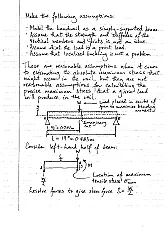 Make the following assumptions:
- Model the handrail as a simple supported beam.
- Assume that the strength and stiffness of the
vertical members and joints is not an issue.
- Assume that the load is a point load.
- Assume that localised buckling is not a problem.
These are reasonable assumptions when it comes
to estimating the absolute maximum stress that
might occur in the rail, but they are not
reasonable assumptions for calculating the
precise maximum stress that a given load
will produce in the rail.
Load placed in centre of
span to maximise bending
moment
Consider left-hand half of beam:
Location of maximum
tensile stress
Resolve forces to give shear force S =